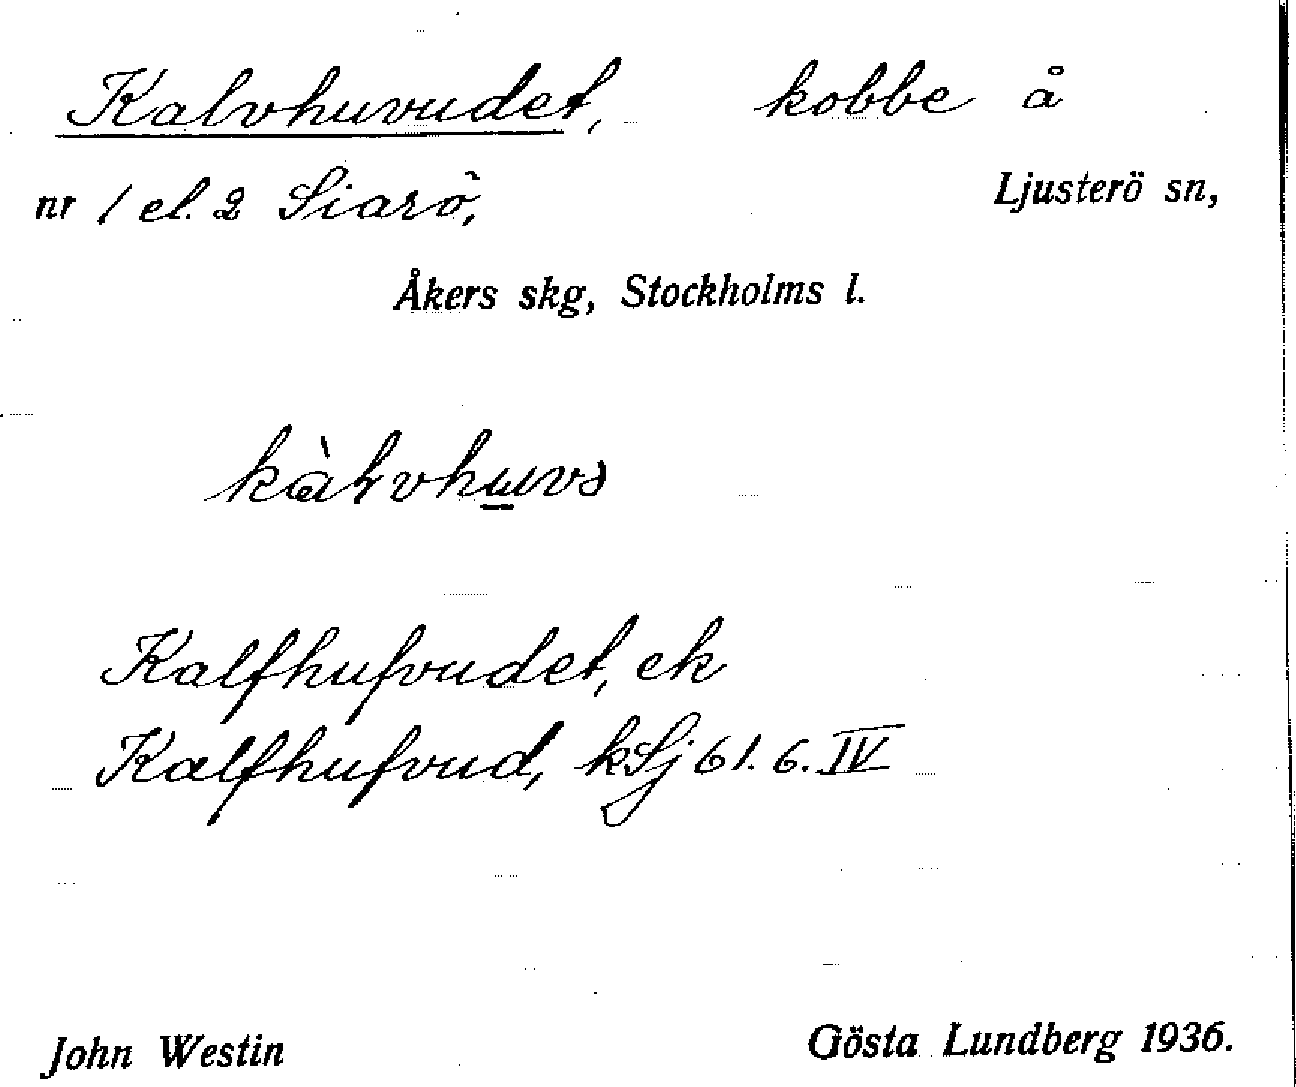 Kalvhuvudet, kobbe å
nr 1 el. 2 Siarö, Ljusterö sn,
Åkers skg, Stockholms l.
Kalfhufvudet, ek
Kalfhufvud, kSj 61. 6. IV
John Westin Gösta Lundberg 1936.